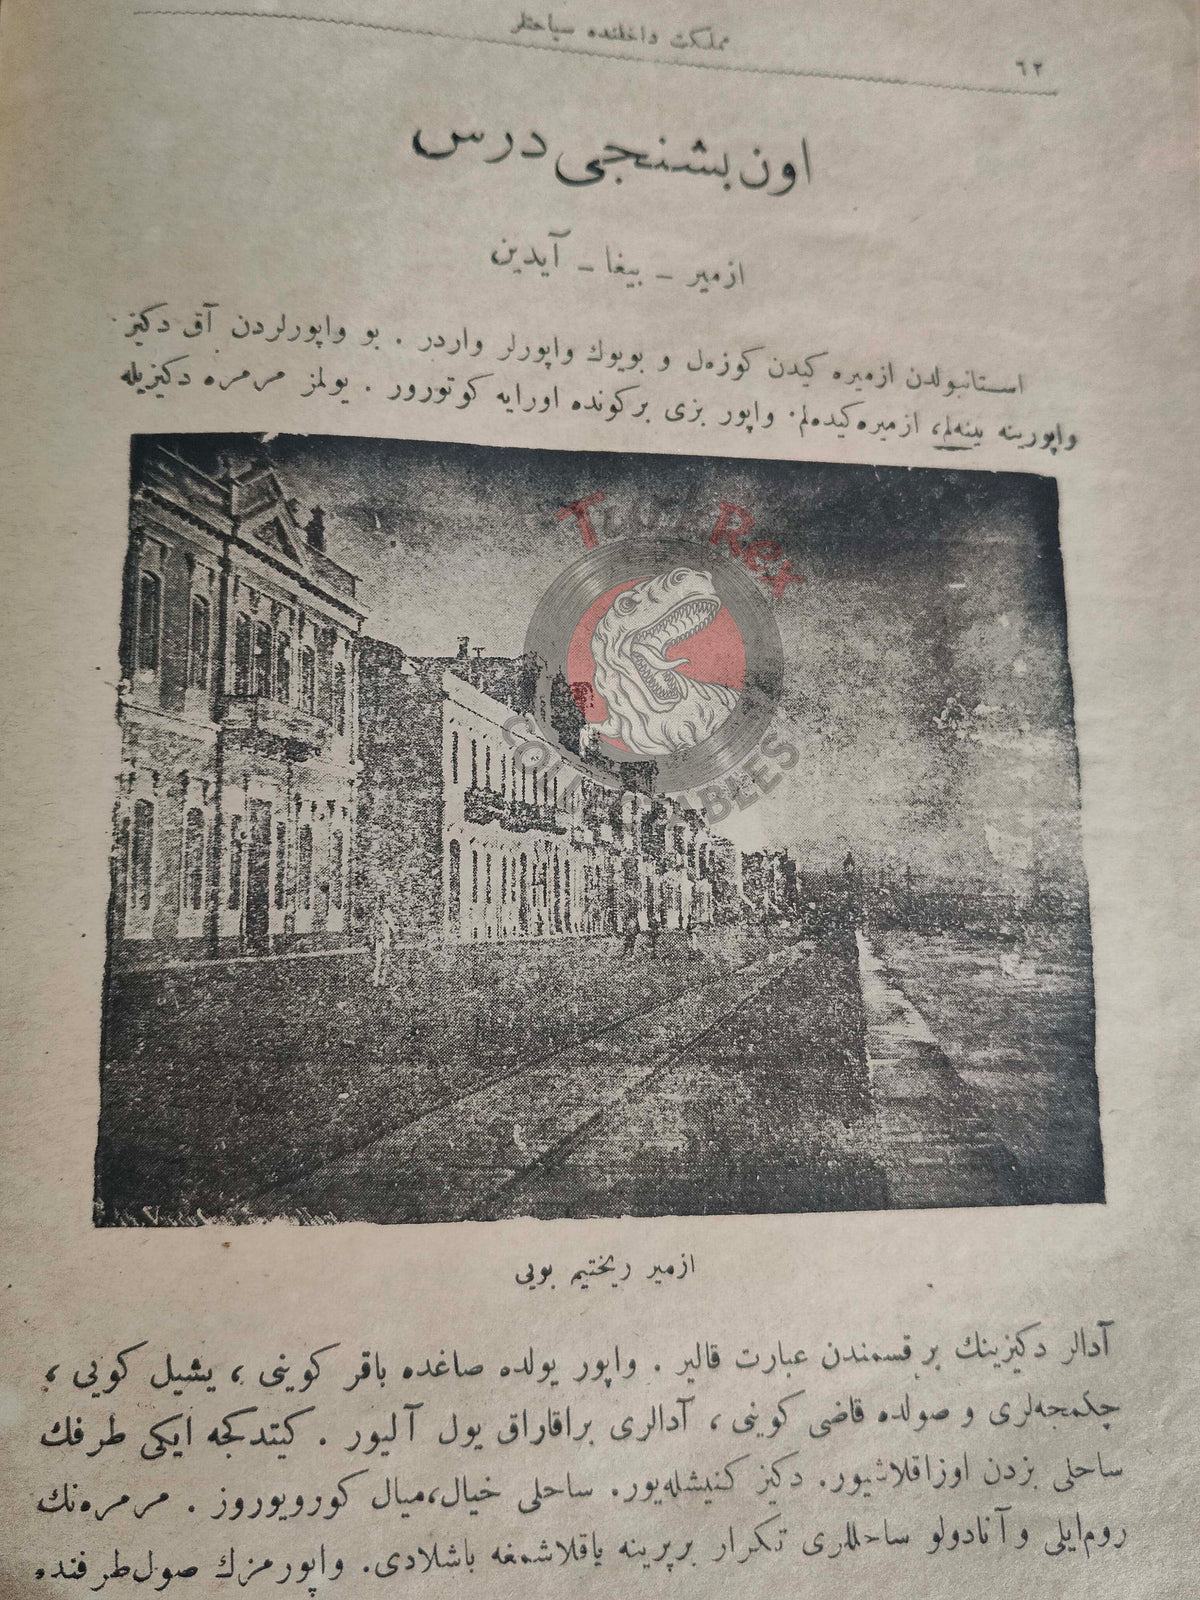 مملكت داخلنده سياحتلر
٦٢
اون بشنجی درس
ازمير ـ بيغا ـ آيدين
استانبولدن ازميره كيدن كوزه‌ل و بويوك واپورلر واردر . بو واپورلردن آق دكيز
واپورينه بينه‌لم، ازميره كيده‌لم. واپور بزی بركونده اورايه كوتورور . يولمز مرمره دكيزيله
Turk Rex
COLLECTABLES
ازمير ريختيم بويى
آدالر دكيزينك بر قسمندن عبارت قالير . واپور يولده صاغده باقر كوينى ، يشيل كويى ،
چكمجه‌لری و صولده قاضى كوينى ، آدالری براقاراق يول آليور . كيتدكجه ايكى طرفك
ساحلى بزدن اوزاقلاشيور. دكيز كنيشله‌يور. ساحلى خيال،ميال كورويوروز . مرمره‌نك
روم‌ايلى و آنادولو ساحللری تكرار بربرينه ياقلاشمغه باشلادی. واپورمزك صول طرفنده